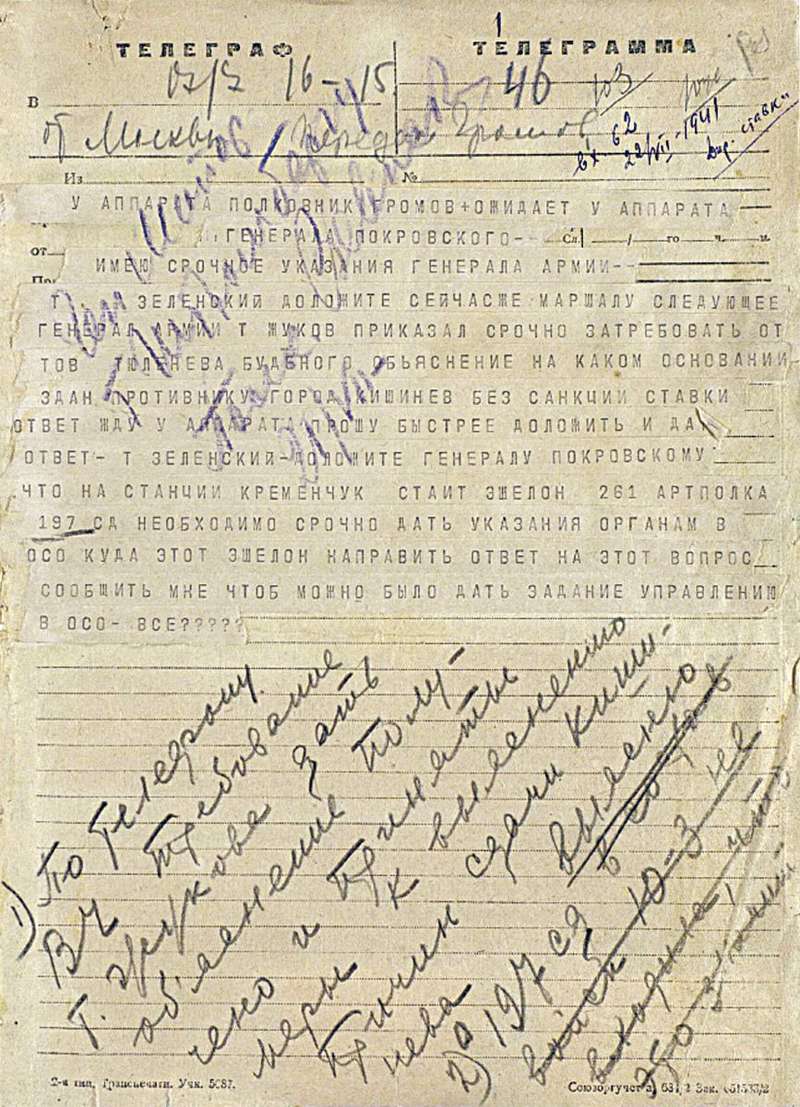 1
ТЕЛЕГРАФ ТЕЛЕГРАММА
В 16-15 46 103
Москвы Передал Громов
Вх. 62
22/VII-1941
ставки
Из № 
У АППАРАТА ПОЛКОВНИК ГРОМОВ+ОЖИДАЕТ У АППАРАТА
ГЕНЕРАЛА ПОКРОВСКОГО-- Сл. го ч. м.
от
ИМЕЮ СРОЧНОЕ УКАЗАНИЯ ГЕНЕРАЛА АРМИИ--
Т ЗЕЛЕНСКИЙ ДОЛОЖИТЕ СЕЙЧАСЖЕ МАРШАЛУ СЛЕДУЮЩЕЕ
ГЕНЕРАЛ АРМИИ Т ЖУКОВ ПРИКАЗАЛ СРОЧНО ЗАТРЕБОВАТЬ ОТ
ТОВ ТЮЛЕНЕВА БУДЕНОГО ОБЬЯСНЕНИЕ НА КАКОМ ОСНОВАНИИ
ЗДАН ПРОТИВНИКУ ГОРОД КИШИНЕВ БЕЗ САНКЦИИ СТАВКИ
ОТВЕТ ЖДУ У АППАРАТА ПРОШУ БЫСТРЕЕ ДОЛОЖИТЬ И ДАТ
ОТВЕТ- Т ЗЕЛЕНСКИЙ-ДОЛОЖИТЕ ГЕНЕРАЛУ ПОКРОВСКОМУ
ЧТО НА СТАНЦИИ КРЕМЕНЧУК СТАИТ ЭШЕЛОН 261 АРТПОЛКА
197 СД НЕОБХОДИМО СРОЧНО ДАТЬ УКАЗАНИЯ ОРГАНАМ В
ОСО КУДА ЭТОТ ЭШЕЛОН НАПРАВИТЬ ОТВЕТ НА ЭТОТ ВОПРОС
СООБЩИТЬ МНЕ ЧТОБ МОЖНО БЫЛО ДАТЬ ЗАДАНИЕ УПРАВЛЕНИЮ
В ОСО- ВСЕ????
1) По телефону
ВЧ требование
т. Жукова дать
объяснение полу-
чено и приняты
меры к выяснению
причин сдачи Киши-
нева
2) О 197 сд выяснено
в состав
войск Ю-З не
входила, что
2-я тип. Трансжелдориздата